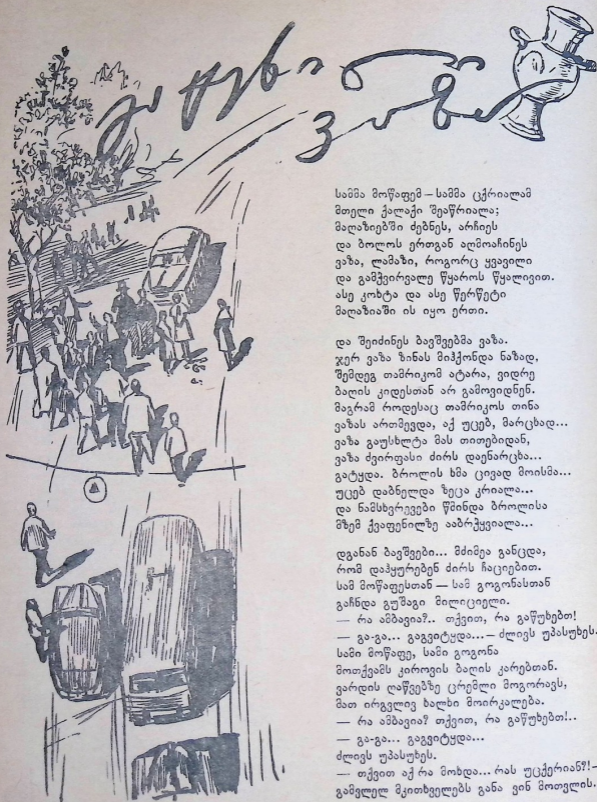 გატეხილი
ვაზა
სამმა მოწაფემ — სამმა ცქრიალამ
მთელი ქალაქი შეაწრიალა;
მაღაზიებში ძებნეს, არჩიეს
და ბოლოს ერთგან აღმოაჩინეს
ვაზა, ლამაზი, როგორც ყვავილი
და გამჭვირვალე წყაროს წყალივით.
ასე კოხტა და ასე წერწეტი
მაღაზიაში ის იყო ერთი.
და შეიძინეს ბავშვებმა ვაზა.
ჯერ ვაზა ზინას მიჰქონდა ნაზად,
შემდეგ თამრიკომ ატარა, ვიდრე
ბაღის კიდესთან არ გამოვიდნენ.
მაგრამ როდესაც თამრიკოს თინა
ვაზას ართმევდა, აქ უცებ, მარცხად...
ვაზა გაუსხლტა მას თითებიდან,
ვაზა ძვირფასი ძირს დაენარცხა...
გატყდა. ბროლის ხმა ცივად მოისმა...
უცებ დაბნელდა ზეცა კრიალა...
და ნამსხვრევები წმინდა ბროლისა
მზემ ქვაფენილზე ააბრჭყვიალა...
დგანან ბავშვები... მძიმეა განცდა,
რომ დაჰყურებენ ძირს ჩაციებით.
სამ მოწაფესთან — სამ გოგონასთან
გაჩნდა გუშაგი მილიციელი.
— რა ამბავია?.. თქვით, რა გაწუხებთ!
— გა-გა... გაგვიტყდა... — ძლივს უპასუხეს.
სამი მოწაფე, სამი გოგონა
მოთქვამს კიროვის ბაღის კარებთან.
ვარდის ღაწვებზე ცრემლი მოგორავს,
მათ ირგვლივ ხალხი მოირკალება.
— რა ამბავია? თქვით, რა გაწუხებთ!..
— გა-გა... გაგვიტყდა...
ძლივს უპასუხეს.
— თქვით აქ რა მოხდა... რას უცქერიან?! —
გამვლელ მკითხველებს განა ვინ მოთვლის.